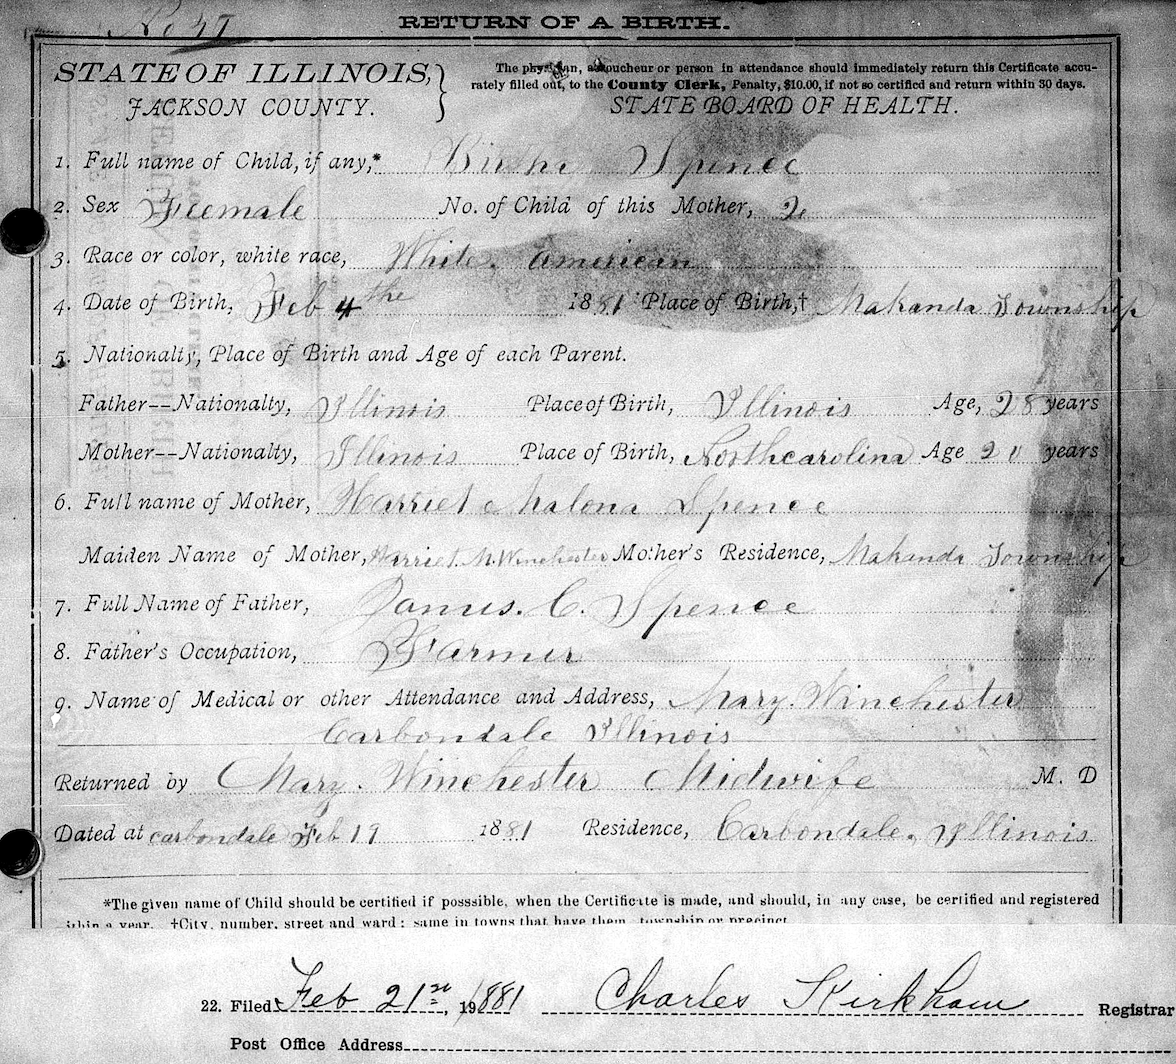 No 47
RETURN OF A BIRTH.
STATE OF ILLINOIS,
JACKSON COUNTY.
The physician, accoucheur or person in attendance should immediately return this Certificate accu-
rately filled out, to the County Clerk, Penalty, $10.00, if not so certified and return within 30 days.
STATE BOARD OF HEALTH.
1. Full name of Child, if any,* Spence
2. Sex Feemale No. of Child of this Mother, 2
3. Race or color, white race, White. American
4. Date of Birth, Feb 4 the 1881 Place of Birth,† Makanda Township
5. Nationalty, Place of Birth and Age of each Parent.
Father--Nationalty, Illinois Place of Birth, Illinois Age, 28 years
Mother--Nationalty, Illinois Place of Birth, Northcarolina Age years
6. Full name of Mother, Harriet Malona Spence
Maiden Name of Mother, Harriet. M. Winchester Mother's Residence, Makanda Township
7. Full Name of Father, James. C. Spence
8. Father's Occupation, Farmer
9. Name of Medical or other Attendance and Address, Mary. Winchester
Carbondale Illinois
Returned by Mary. Winchester Midwife M. D
Dated at carbondale Feb 19 1881 Residence, Carbondale, Illinois
*The given name of Child should be certified if posssible, when the Certificate is made, and should, in any case, be certified and registered
within a year. †City, number, street and ward; same in towns that have them, township or precinct
22. Filed Feb 21st, 1881 Charles Kirkham Registrar
Post Office Address